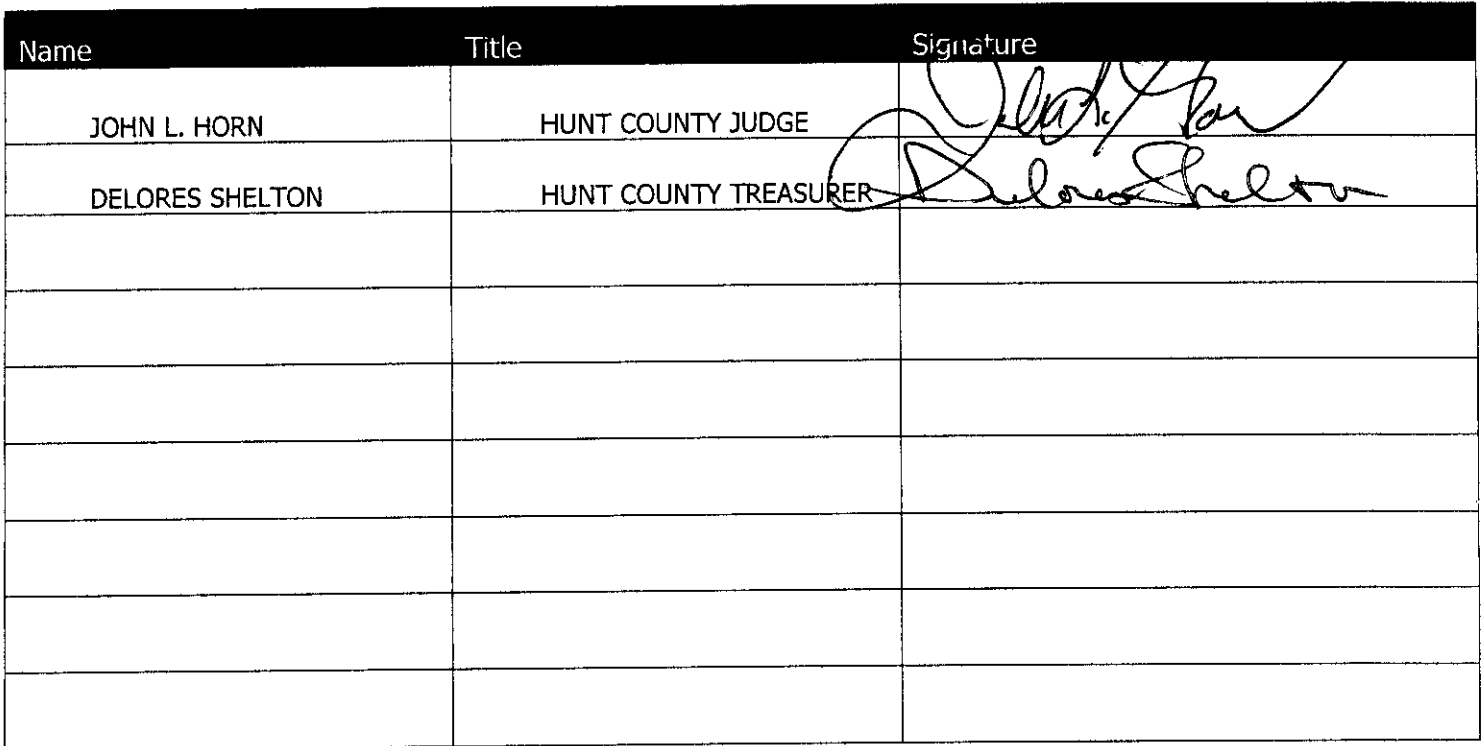 Name Title Signature
JOHN L. HORN HUNT COUNTY JUDGE John L. Horn
DELORES SHELTON HUNT COUNTY TREASURER Delores Shelton